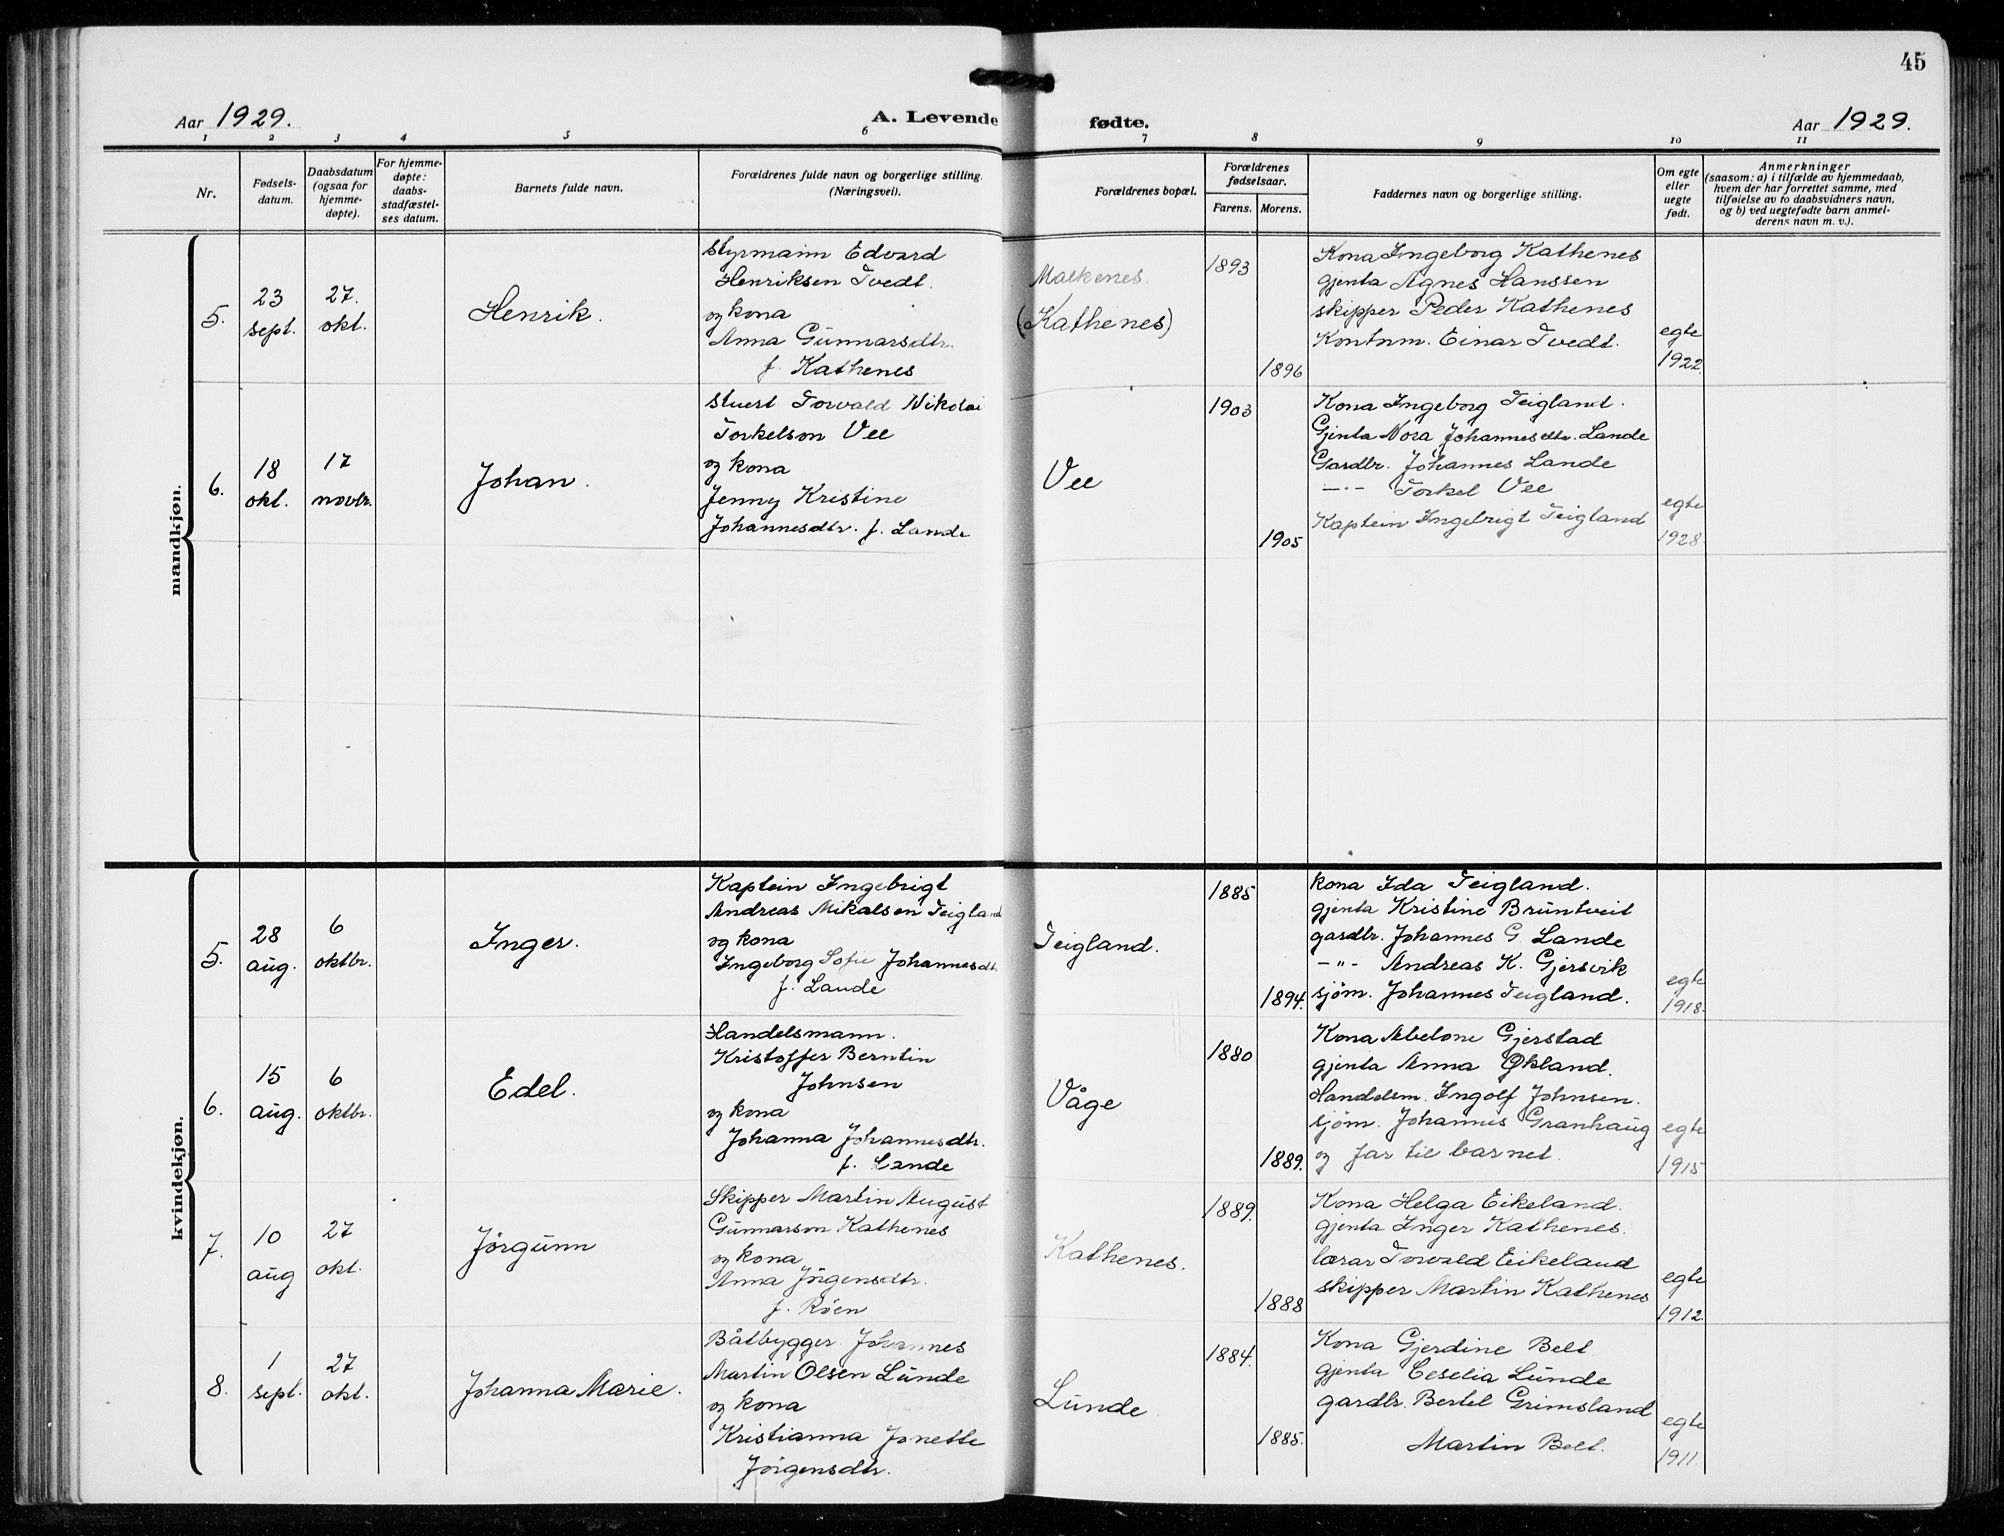 45
Aar 1929. A. Levende fødte. Aar 1929.
1 2 3 4 5 6 7 8 9 10 11
Nr.
Fødsels-
datum.
Daabsdatum
(ogsaa for
hjemme-
døpte).
For hjemme-
døpte:
daabs-
stadfæstel-
ses datum.
Barnets fulde navn.
Forældrenes fulde navn og borgerlige stilling.
(Næringsvei).
Forældrenes bopæl.
Forældrenes
fødselsaar.
Farens. Morens.
Faddernes navn og borgerlige stilling.
Om egte
eller
uegte
født.
Anmerkninger
(saasom: a) i tilfælde av hjemmedaab,
hvem der har forrettet samme, med
tilføielse av to daabsvidners navn,
og b) ved uegtefødte barn anmel-
derens navn m. v.).
mandkjøn.
5.
23
sept.
27.
okt.
Henrik.
Styrmann Edvard
Henriksen Tvedt.
og kona
Anna Gunnarsdtr.
f. Kathenes
Malkenes.
(Kathenes)
1893
1896
Kona Ingeborg Kathenes
gjenta Agnes Hanssen
skipper Peder Kathenes
Kontnm. Einar Tvedt.
egte
1922.
6.
18
okt.
17
novbr.
Johan.
Stuert Torvald Nikolai
Torkelson Vee
og kona
Jenny Kristine
Johannesdtr. f. Lande
Vee
1903
1905
Kona Ingeborg Teigland.
Gjenta Nora Johannesdtr. Lande
Gardbr. Johannes Lande
—"— Torkel Vee
Kaptein Ingebrigt Teigland
egte
1928
kvindekjøn.
5.
28
aug.
6
oktbr.
Inger.
Kaptein Ingebrigt
Andreas Mikalsen Teigland
og kona
Ingeborg Sofie Johannesdtr.
f. Lande
Teigland.
1885
1894.
kona Ida Teigland.
gjenta Kristine Bruntveit
gardbr. Johannes G Lande
—"— Andreas K. Gjersvik
sjøm. Johannes Teigland.
egte
1918.
6.
15
aug.
6
oktbr.
Edel.
Handelsmann.
Kristoffer Berntin
Johnsen
og kona
Johanna Johannesdtr.
f. Lande
Våge
1880
1889.
Kona Abelone Gjerstad
gjenta Anna Økland.
Handelsm. Ingolf Johnsen.
sjøm. Johannes Granhaug
og far til barnet.
egte
1915
7.
10
aug
27
okt.
Jörgunn
Skipper Martin August
Gunnarson Kathenes
og kona
Anna Jörgensdtr.
f. Röen
Kathenes.
1889.
1888
Kona Helga Eikeland.
gjenta Inger Kathenes.
lærar Torvald Eikeland
skipper Martin Kathenes
egte
1912.
8.
1
sept.
27
okt.
Johanna Marie.
Båtbygger Johannes
Martin Olsen Lunde
og kona
Kristianna Jonette
Jörgensdtr.
Lunde
1884.
1885.
Kona Gjerdine Belt
gjenta Ceselia Lunde
gardbr. Bertel Grimsland
Martin Belt.
egte
1911.